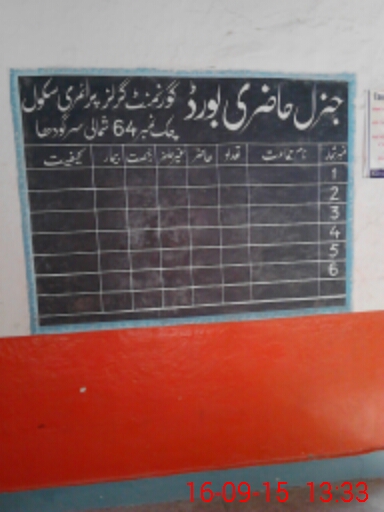 جنرل حاضری بورڈ گورنمنٹ گرلز پرائمری سکول
چک نمبر 64 شمالی سرگودھا
نمبر شمار نام جماعت تعداد حاضر غیر حاضر رخصت بیمار کیفیت
1
2
3
4
5
6
16-09-15 13:33